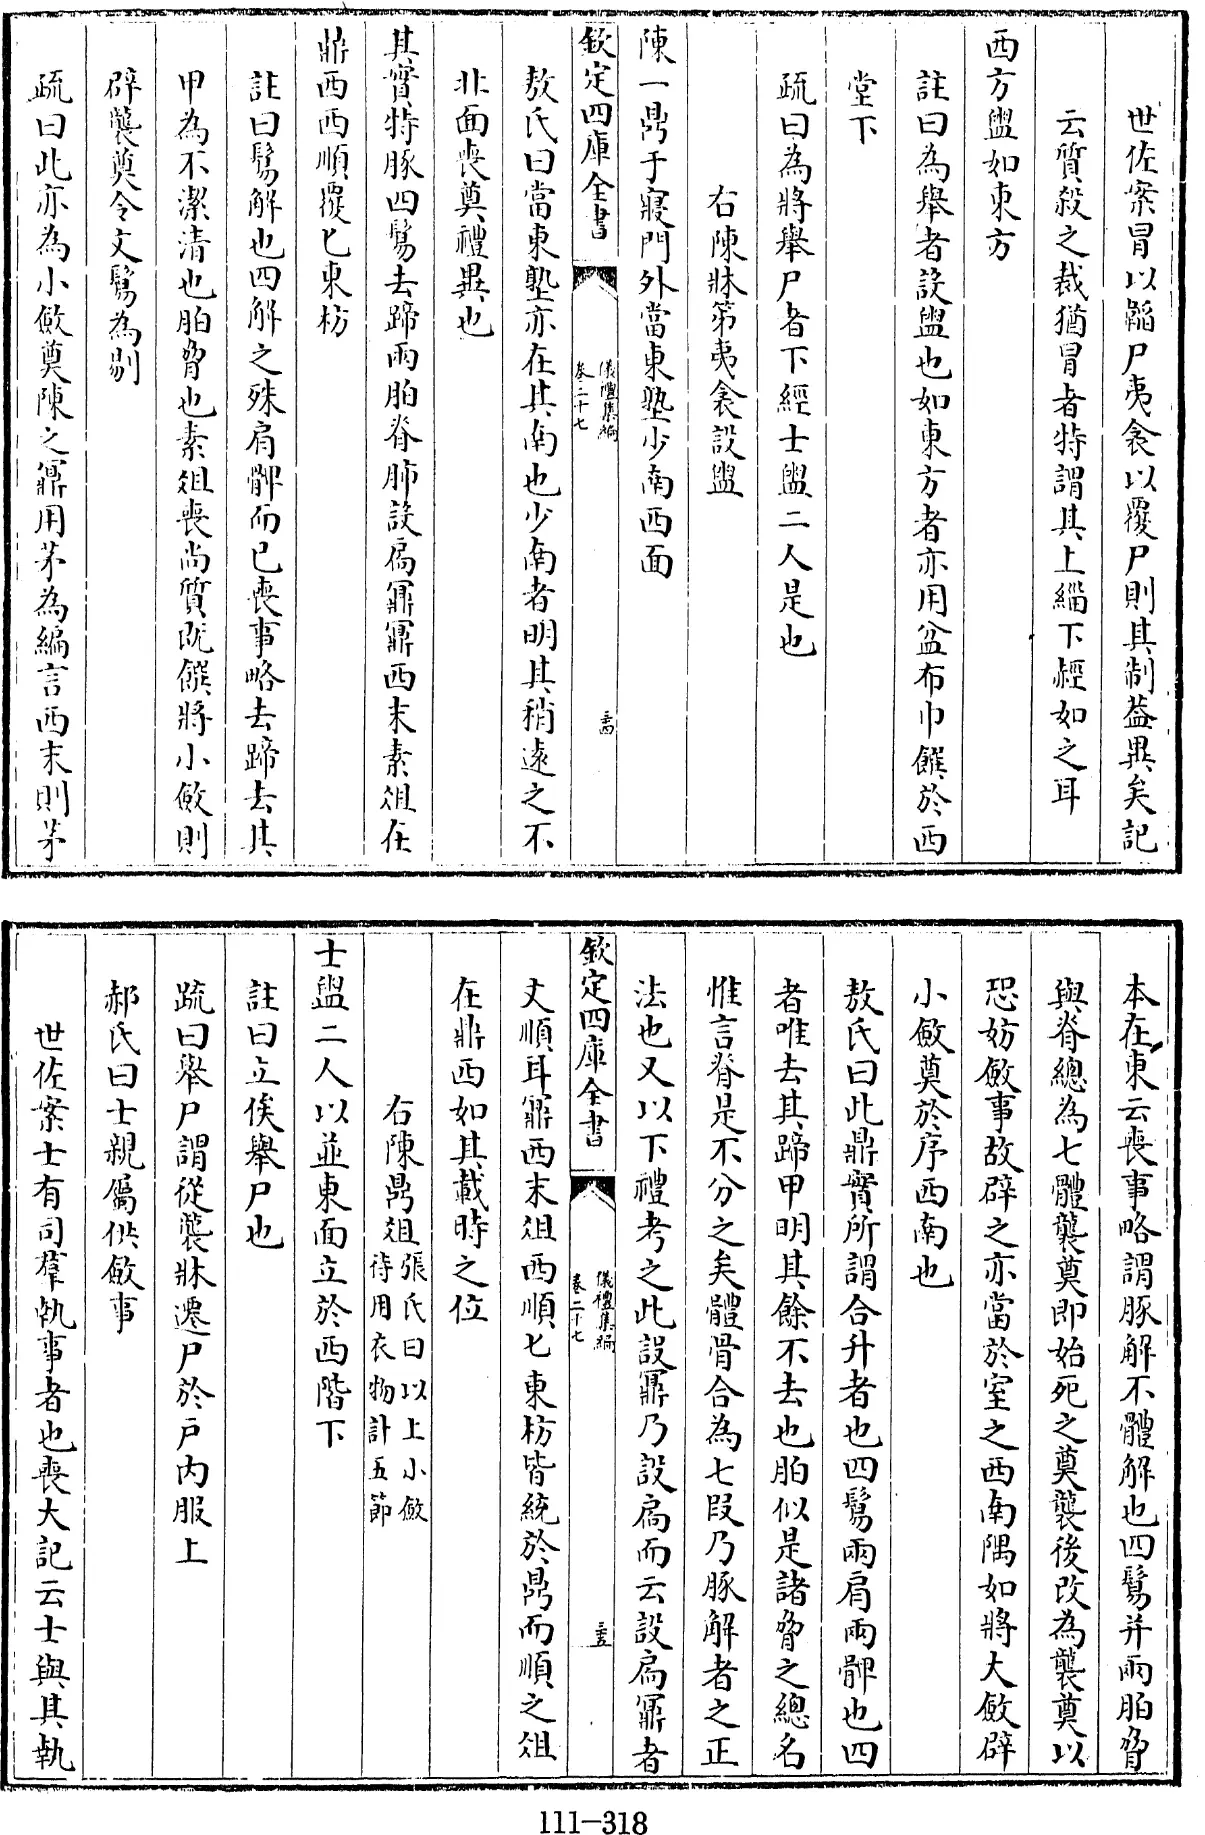 世佐案冒以韜尸夷衾以覆尸則其制蓋異矣記
云質殺之裁猶冒者特謂其上緇下䞓如之耳
西方盥如東方
註曰為舉者設盥也如東方者亦用盆布巾饌於西
堂下
疏曰為將舉尸者下經士盥二人是也
右陳牀笫夷衾設盥
陳一鼎于寢門外當東塾少南西面
欽定四庫全書
儀禮集編
卷二十七
三十四
敖氏曰當東塾亦在其南也少南者明其稍遠之不
北面喪奠禮異也
其實特豚四鬄去蹄兩胉脊肺設扃鼏鼏西末素俎在
鼎西西順覆匕東枋
註曰鬄解也四解之殊肩髀而已喪事略去蹄去其
甲為不潔清也胉脅也素俎喪尚質既饌將小斂則
辟襲奠今文鬄為剔
疏曰此亦為小斂奠陳之鼏用茅為編言西末則茅
本在東云喪事略謂豚解不體解也四鬄并兩胉脅
與脊總為七體襲奠即始死之奠襲後改為襲奠以
恐妨斂事故辟之亦當於室之西南隅如將大斂辟
小斂奠於序西南也
敖氏曰此鼎實所謂合升者也四鬄兩肩兩髀也四
者唯去其蹄甲明其餘不去也胉似是諸脅之總名
惟言脊是不分之矣體骨合為七段乃豚解者之正
法也又以下禮考之此設鼏乃設扃而云設扃鼏者
欽定四庫全書
儀禮集編
卷二十七
三十五
文順耳鼏西末俎西順匕東枋皆統於鼎而順之俎
在鼎西如其載時之位
右陳鼎俎張氏曰以上小斂
待用衣物計五節
士盥二人以並東面立於西階下
註曰立俟舉尸也
疏曰舉尸謂從襲牀遷尸於戶內服上
郝氏曰士親屬供斂事
世佐案士有司羣執事者也喪大記云士與其執
111-318